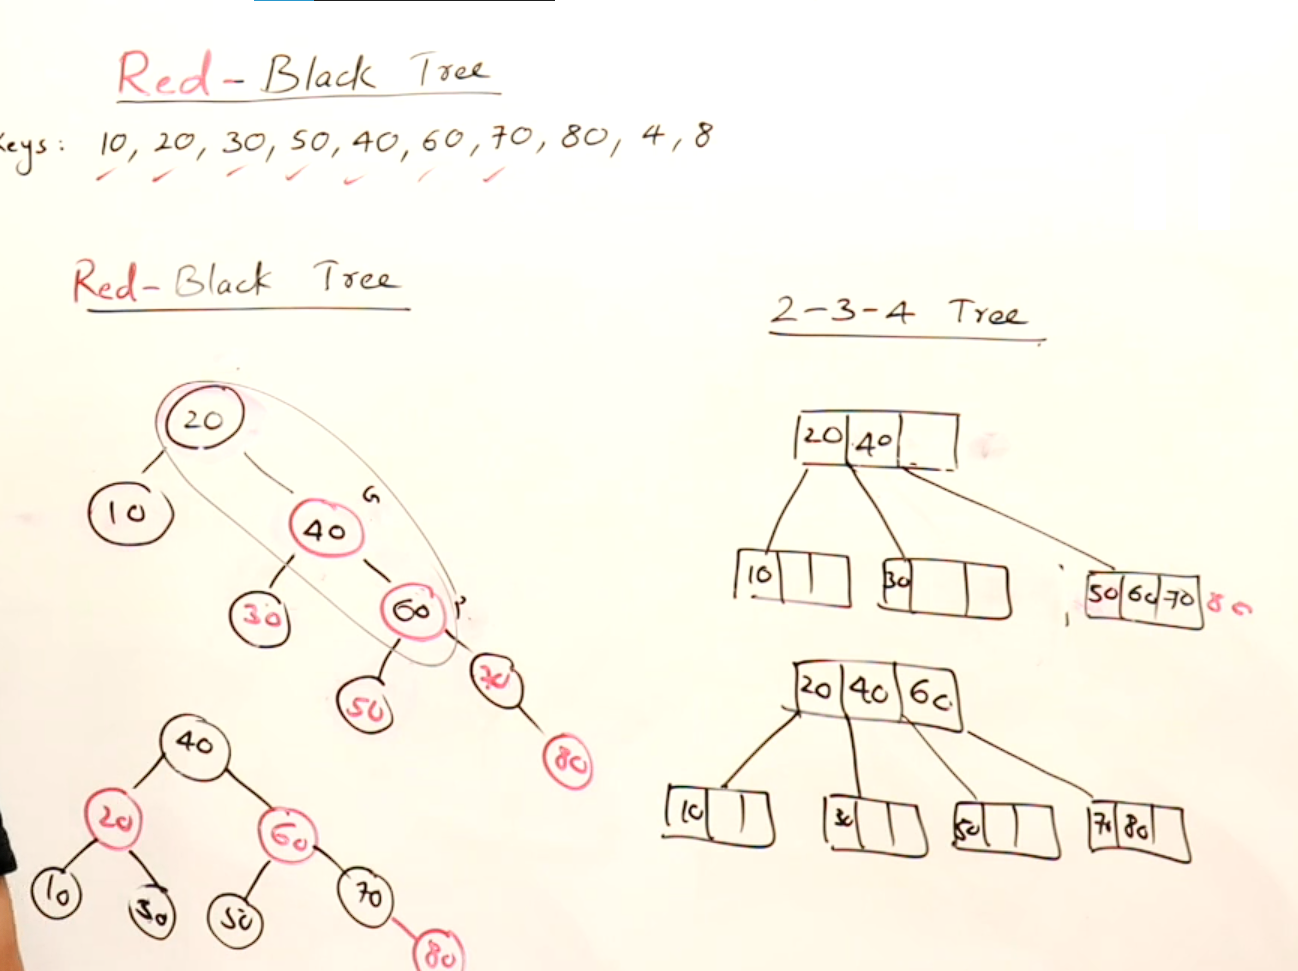 Red-Black Tree
Keys: 10, 20, 30, 50, 40, 60, 70, 80, 4, 8
Red-Black Tree
2-3-4 Tree
20
10
40 G
30
60 P
50
70
80
20 40
10
30
50 60 70 80
40
20
60
10
30
50
70
80
20 40 60
10
30
50
70 80